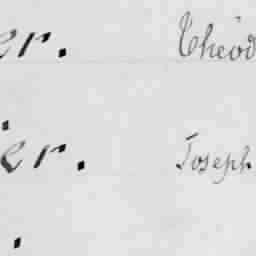 er. Théod
ier. Joseph
.